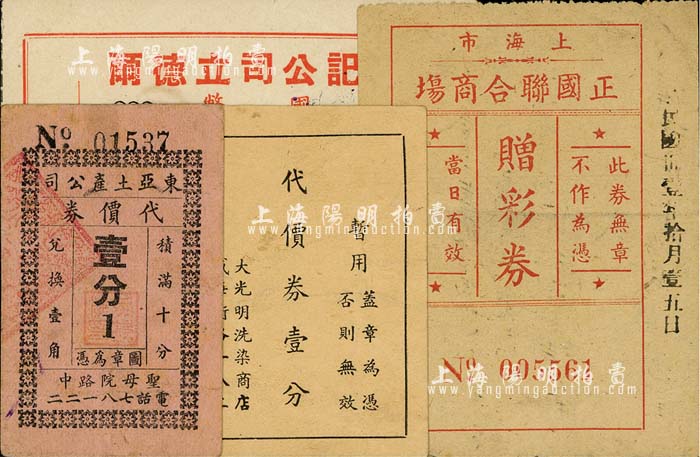 司公記立德爾
幣
國
No 01537
東亞土產公司
代價券
積滿十分
壹分
1
兌換壹角
圖章為憑
聖母院路中
電話七八一二二
代價券壹分
暫用
蓋章為憑
否則無效
大光明洗染商店
上海市
正國聯合商場
此券無章
不作為憑
贈彩券
當日有效
No 005561
上海陽明拍賣
www.yangmingauction.com
上海陽明拍賣
www.yangmingauction.com
上海陽明拍賣
www.yangmingauction.com